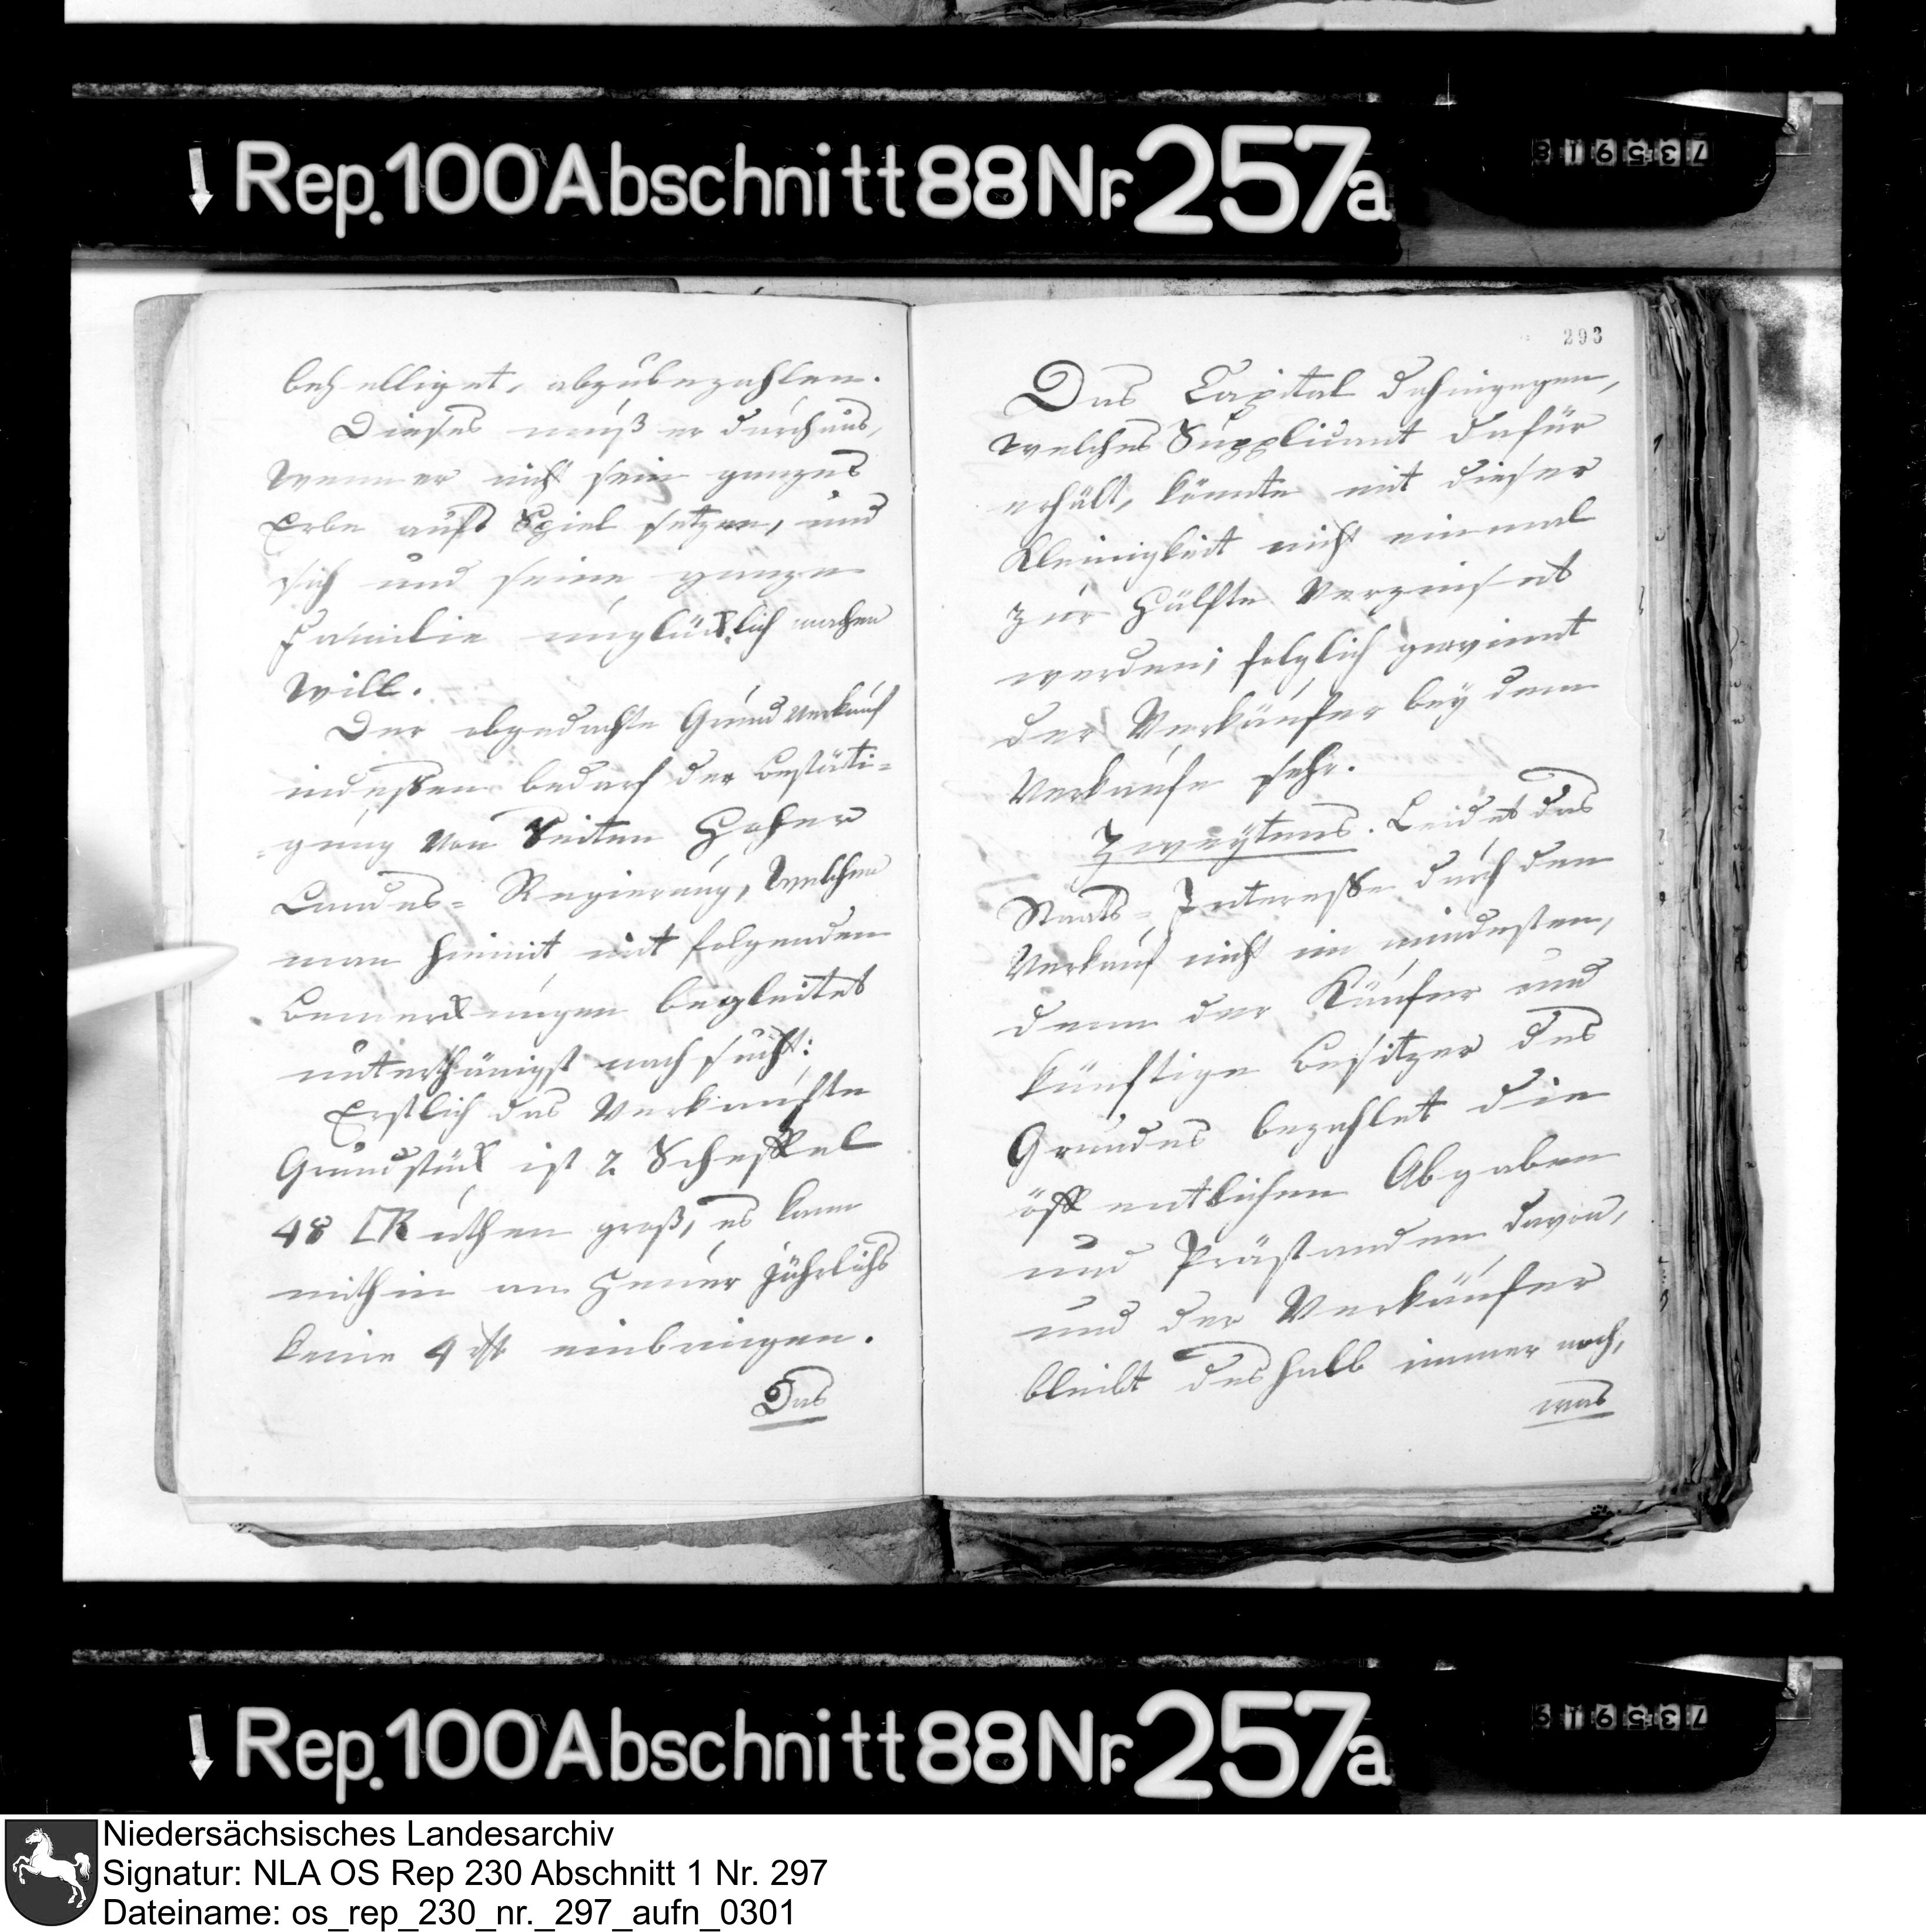 Rep.100 Abschnitt 88 Nr. 257a
735918
behelliget, abzubezahlen.
Dieses muß er durchaus,
wenn er nicht sein ganzes
Erbe aufs Spiel setzen, und
sich und seine ganze
Familie unglücklich machen
will.
Der abgedachte Grund Verkauf
indessen bedarf der Bestäti=
=gung von Seiten Hoher
Landes= Regierung, welchen
man hiemit mit folgenden
Bemerckungen begleitet
unterthänigst nachsucht:
Erstlich das Verkaufte
Grundstück ist 2 Scheffel
48 Ruthen groß, es kann
mithin an Heuer jährlichs
keine 4 rth einbringen.
Das
293
Das Capital dahingegen,
welches Supplicant dafür
erhält, könnte mit dieser
Kleinigkeit nicht einmal
zur Hälfte verzinset
werden; folglich gewinnt
der Verkäufer bey dem
Verkaufe sehr.
Zweytens. Leidet das
Staats= Interesse durch den
Verkauf nicht im mindesten,
denn der Käufer und
künftige Besitzer des
Grundes bezahlet die
öffentlichen Abgaben
und Prästanden davon,
und der Verkäufer
bleibt deshalb immer noch,
was
Rep.100 Abschnitt 88 Nr. 257a
735919
Niedersächsisches Landesarchiv
Signatur: NLA OS Rep 230 Abschnitt 1 Nr. 297
Dateiname: os_rep_230_nr._297_aufn_0301